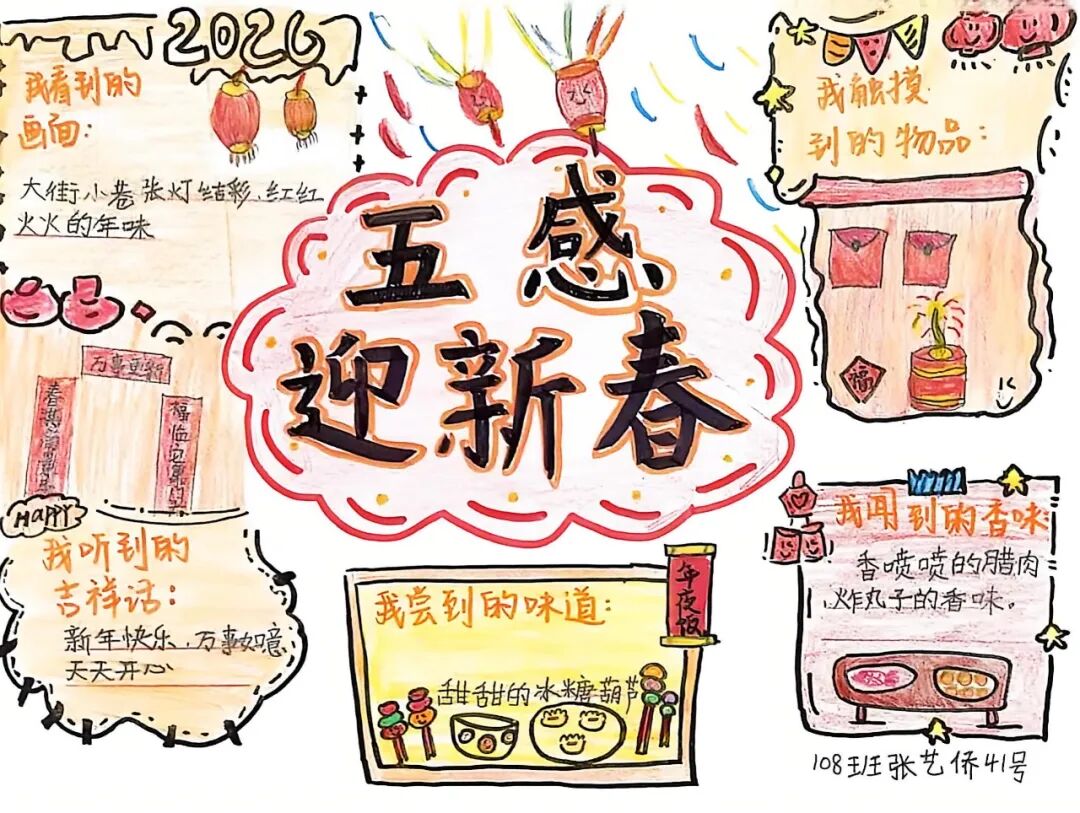 2026
我看到的
画面：
大街小巷张灯结彩、红红
火火的年味
五感
迎新春
我触摸
到的物品：
福
万事更新
Happy
我听到的
吉祥话：
新年快乐、万事如意、
天天开心
我尝到的味道：
年夜饭
甜甜的冰糖葫芦
我闻到的香味：
香喷喷的腊肉
炸丸子的香味。
108班张艺侨41号